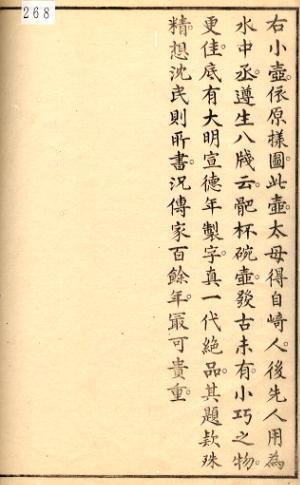 268
右小壺。依原樣圖。此壺太母得自崎人。後先人用為
水中丞。遵生八牋云。靶杯碗壺。發古未有。小巧之物。
更佳。底有大明宣德年製字。真一代絶品。其題欵殊
精。想沈民則所書。況傳家百餘年。最可貴重。